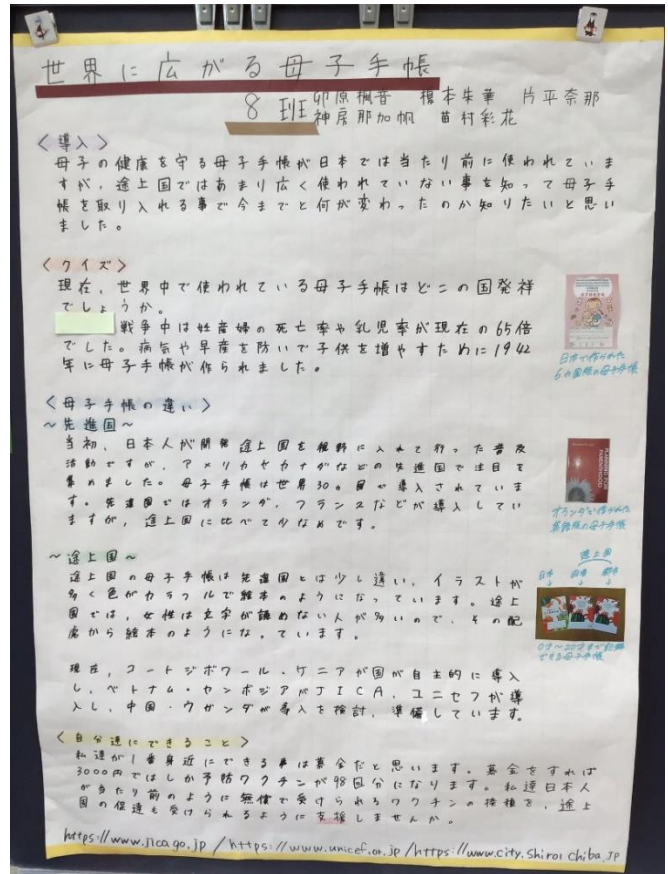 世界に広がる母子手帳
8班 卯原楓音 榎本朱華 片平奈那
神房那加帆 苗村彩花
<導入>
母子の健康を守る母子手帳が日本では当たり前に使われていま
すが、途上国ではあまり広く使われていない事を知って母子手
帳を取り入れる事で今までと何が変わったのか知りたいと思い
ました。
<クイズ>
現在、世界中で使われている母子手帳はどこの国発祥
でしょうか。
戦争中は妊産婦の死亡率や乳児率が現在の65倍
でした。病気や早産を防いで子供を増やすために1942
年に母子手帳が作られました。
日本で作られた
6カ国語版の母子手帳
<母子手帳の違い>
~先進国~
当初、日本人が開発途上国を視野に入れて行った普及
活動ですが、アメリカやカナダなどの先進国で注目を
集めました。母子手帳は世界30ヵ国で導入されていま
す。先進国ではオランダ、フランスなどが導入してい
ますが、途上国に比べて少なめです。
PLANNING FOR PARENTHOOD
オランダで作られた
英語版の母子手帳
~途上国~
途上国の母子手帳は先進国とは少し違い、イラストが
多く色がカラフルで絵本のようになっています。途上
国では、女性は文字が読めない人が多いので、その配
慮から絵本のようになっています。
途上国
日本
0才~20才まで記録
できる母子手帳
現在、コートジボワール・ケニアが国が自主的に導入
し、ベトナム・センボジアがJICA、ユニセフが導
入し、中国・ウガンダが導入を検討、準備しています。
<自分達にできること>
私達が1番身近にできる事は募金だと思います。募金をすれば
3000円ではしか予防ワクチンが98回分になります。私達日本人
が当たり前のように無償で受けられるワクチンの接種を、途上
国の促達も受けられるように支援しませんか。
https://www.jica.go.jp/https://www.unicef.or.jp/https://www.city.shiroi.chiba.jp